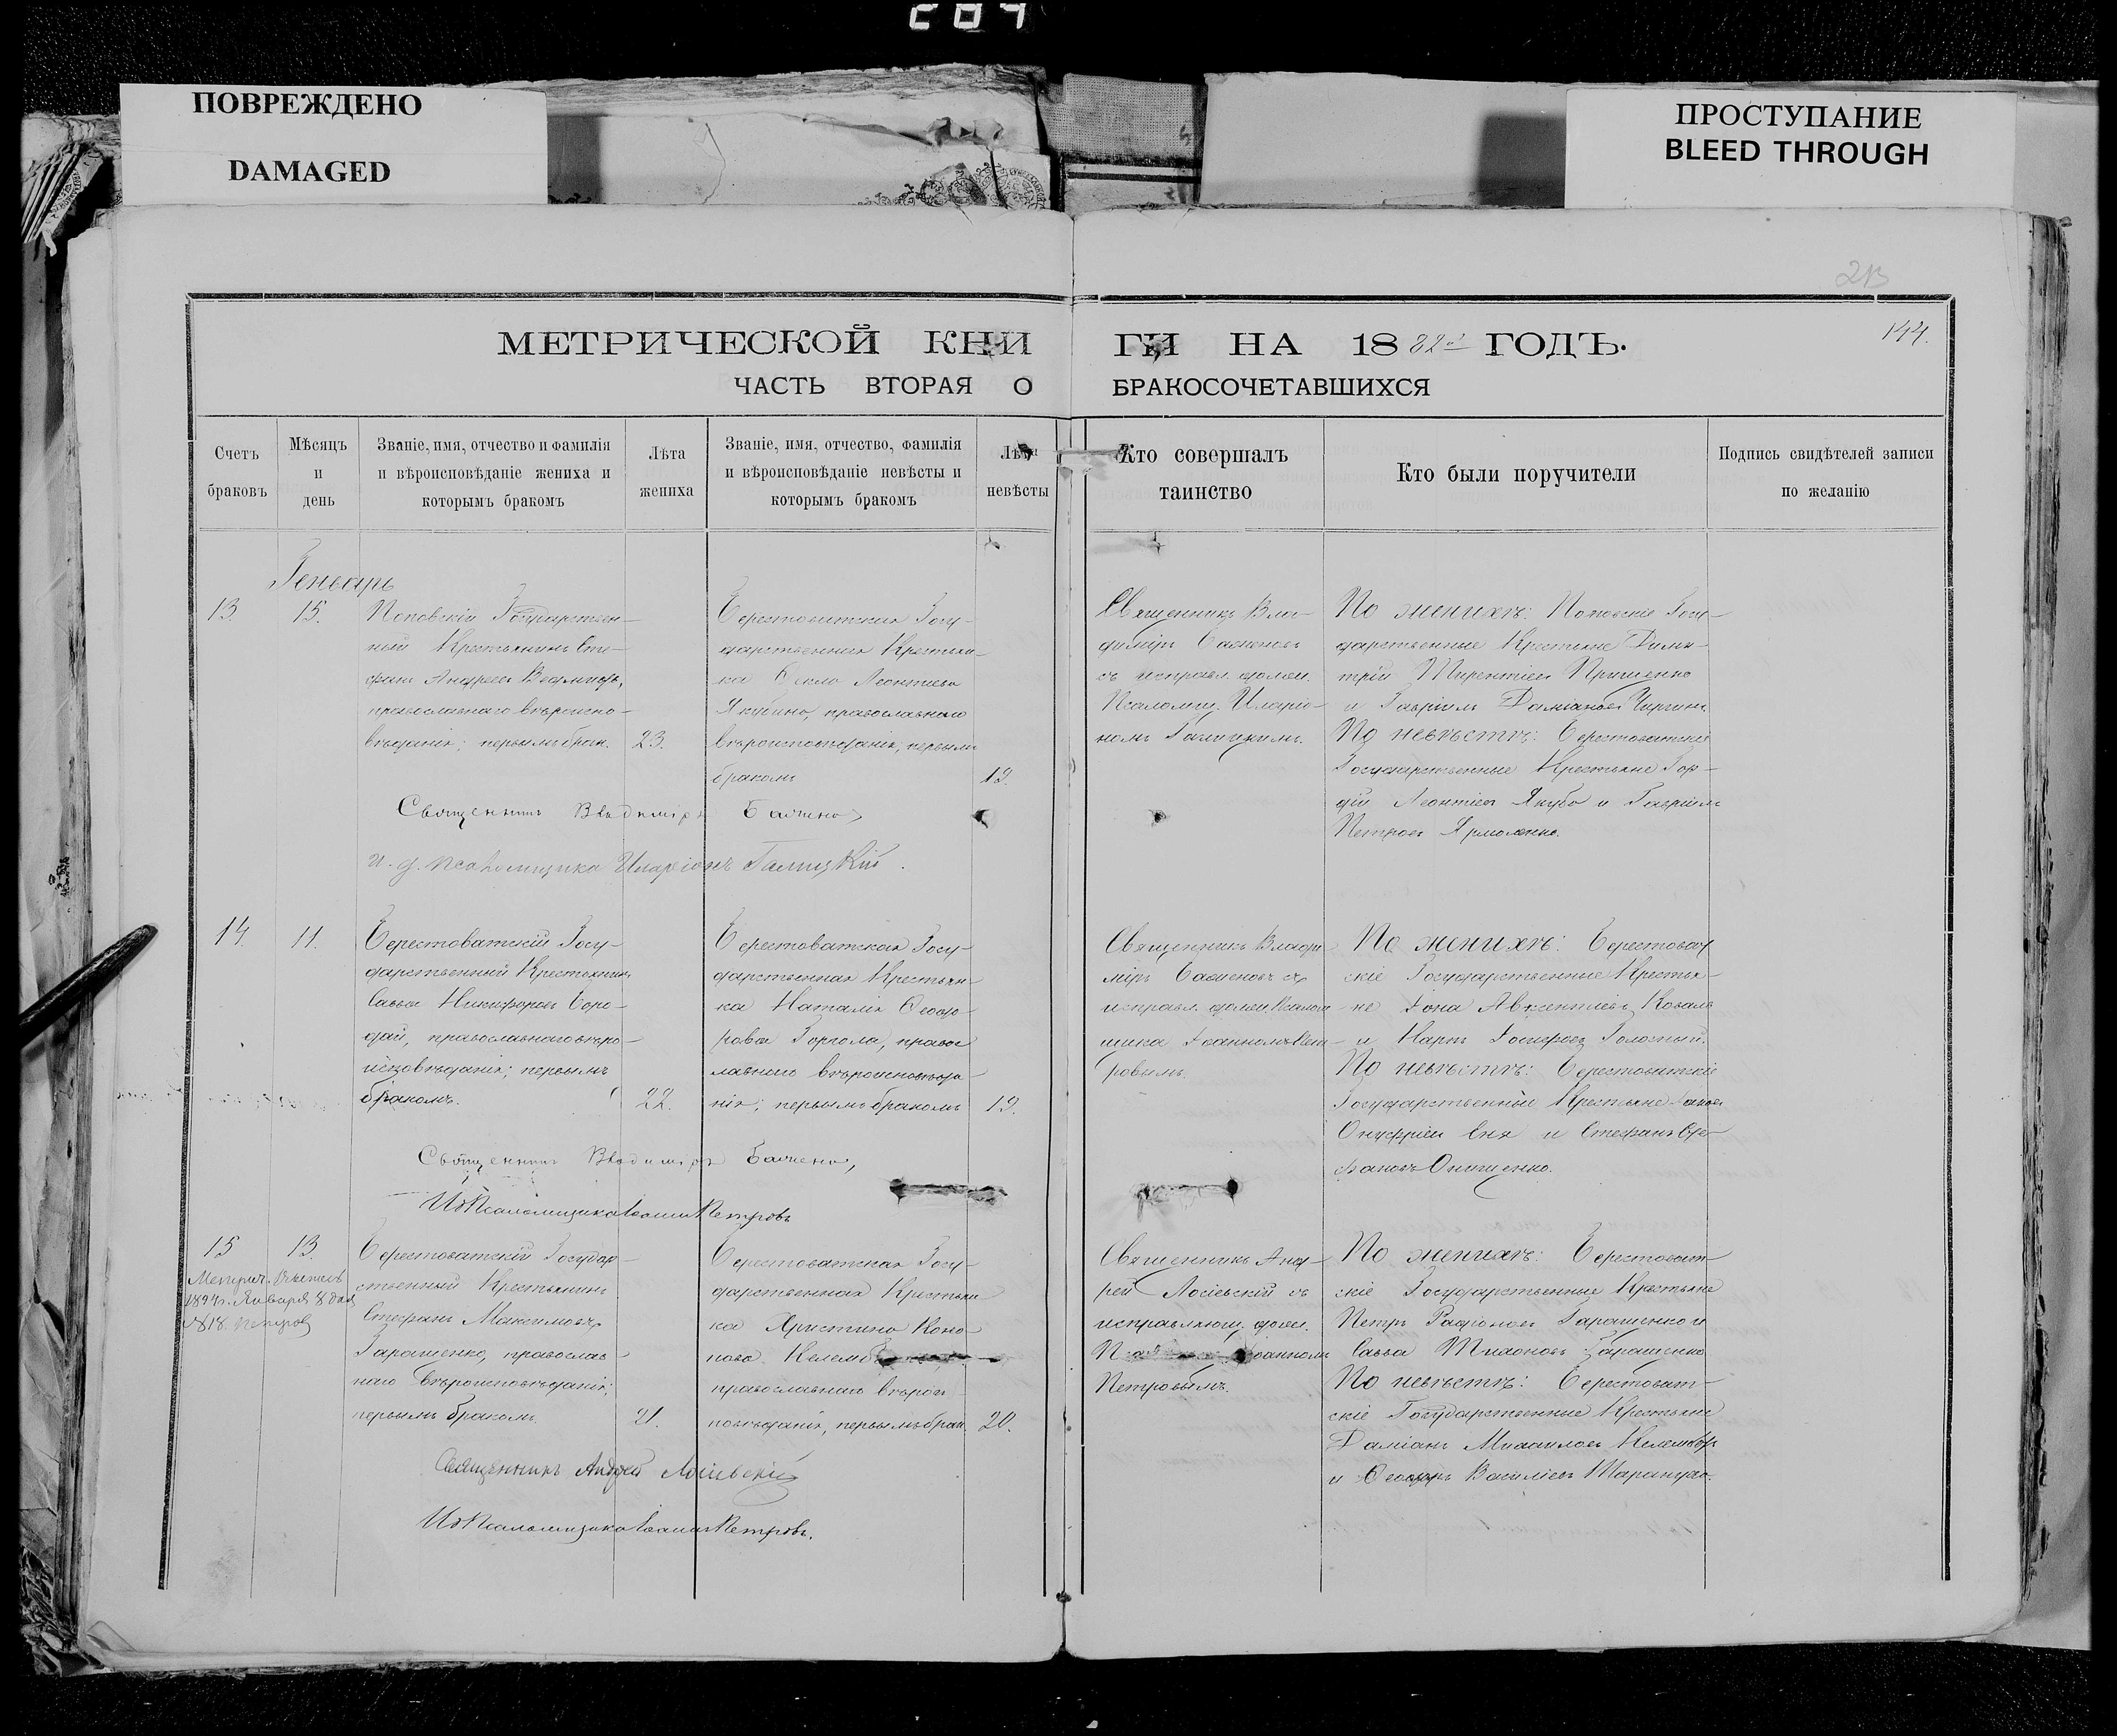 284
ПОВРЕЖДЕНО
DAMAGED
ПРОСТУПАНИЕ
BLEED THROUGH
213
144.
МЕТРИЧЕСКОЙ КНИ ГИ НА 1882й ГОДЪ.
ЧАСТЬ ВТОРАЯ О БРАКОСОЧЕТАВШИХСЯ
Счетъ
браковъ
Мѣсяцъ
и
день
Званіе, имя, отчество и фамилія
и вѣроисповѣданіе жениха и
которымъ бракомъ
Лѣта
жениха
Званіе, имя, отчество, фамилія
и вѣроисповѣданіе невѣсты и
которымъ бракомъ
Лѣта
невѣсты
Кто совершалъ
таинство
Кто были поручители
Подпись свидѣтелей записи
по желанію
Генварь
13.
15.
Поповскій Государствен-
ный Крестьянинъ Сте-
фанъ Андреевъ
православнаго вѣроиспо-
вѣданія; первымъ брак.
23.
Берестоватская Госу-
дарственная Крестьян-
ка Ѳекла Леонтіева
Якубина, православнаго
вѣроисповѣданія, первымъ
бракомъ
19.
Священникъ Вла-
диміръ Баженовъ
съ исправл. должн.
Псаломщ. Иларіо-
номъ Галицкимъ.
По женихѣ: Поповскіе Госу-
дарственные Крестьяне Дими-
трій
и Гавріилъ Даміановъ
По невѣстѣ: Берестоватскіе
Государственные Крестьяне Гор-
дій Леонтіевъ Якубо и Гавріилъ
Петровъ Ярмоленко.
Священникъ Владиміръ Баженовъ
и. д. псаломщика Иларіонъ Галицкій.
14.
11.
Берестоватскій Госу-
дарственный Крестьянинъ
Савва Никифоровъ Боро-
дай, православнаго вѣро-
исповѣданія; первымъ
бракомъ.
22.
Берестоватская Госу-
дарственная Крестьян-
ка Наталія Ѳеодо-
рова Горгола, правос
лавнаго вѣроисповѣда-
нія; первымъ бракомъ
19.
Священникъ Влади-
міръ Баженовъ съ
исправл. должн. Псалом-
щика Іоанномъ Пет-
ровымъ.
По женихѣ: Берестоват
скіе Государственные Крестья-
не Іона Авксентіевъ Коваль
и Карпъ Іосифовъ
По невѣстѣ: Берестоватскіе
Государственные Крестьяне
Онуфріевъ и Стефанъ
Онищенко.
Священникъ Владиміръ Баженовъ,
ИдПсаломщика Іоаннъ Петровъ
15
13.
Метрич. Выпись
1897г. Января 8 дня
№18. Петровъ
Берестоватскій Государ-
ственный Крестьянинъ
Стефанъ Максимовъ
Гаращенко, православ-
наго вѣроисповѣданія;
первымъ бракомъ.
21.
Берестоватская Госу-
дарственная Крестьян
ка Христина Коно-
нова
православнаго вѣроис-
повѣданія, первымъ брак.
20.
Священникъ Анд-
рей Лосіевскій съ
исправляющ. должн.
Іоанномъ
Петровымъ.
По женихѣ: Берестоват-
скіе Государственные Крестьяне
Петръ Родіоновъ Гаращенко и
Савва Тихоновъ Гаращенко
По невѣстѣ: Берестоват-
скіе Государственные Крестьяне
Даміанъ Михаиловъ
и Ѳеодоръ Василіевъ
Священникъ Андрей Лосіевскій
ИдПсаломщика Іоаннъ Петровъ.